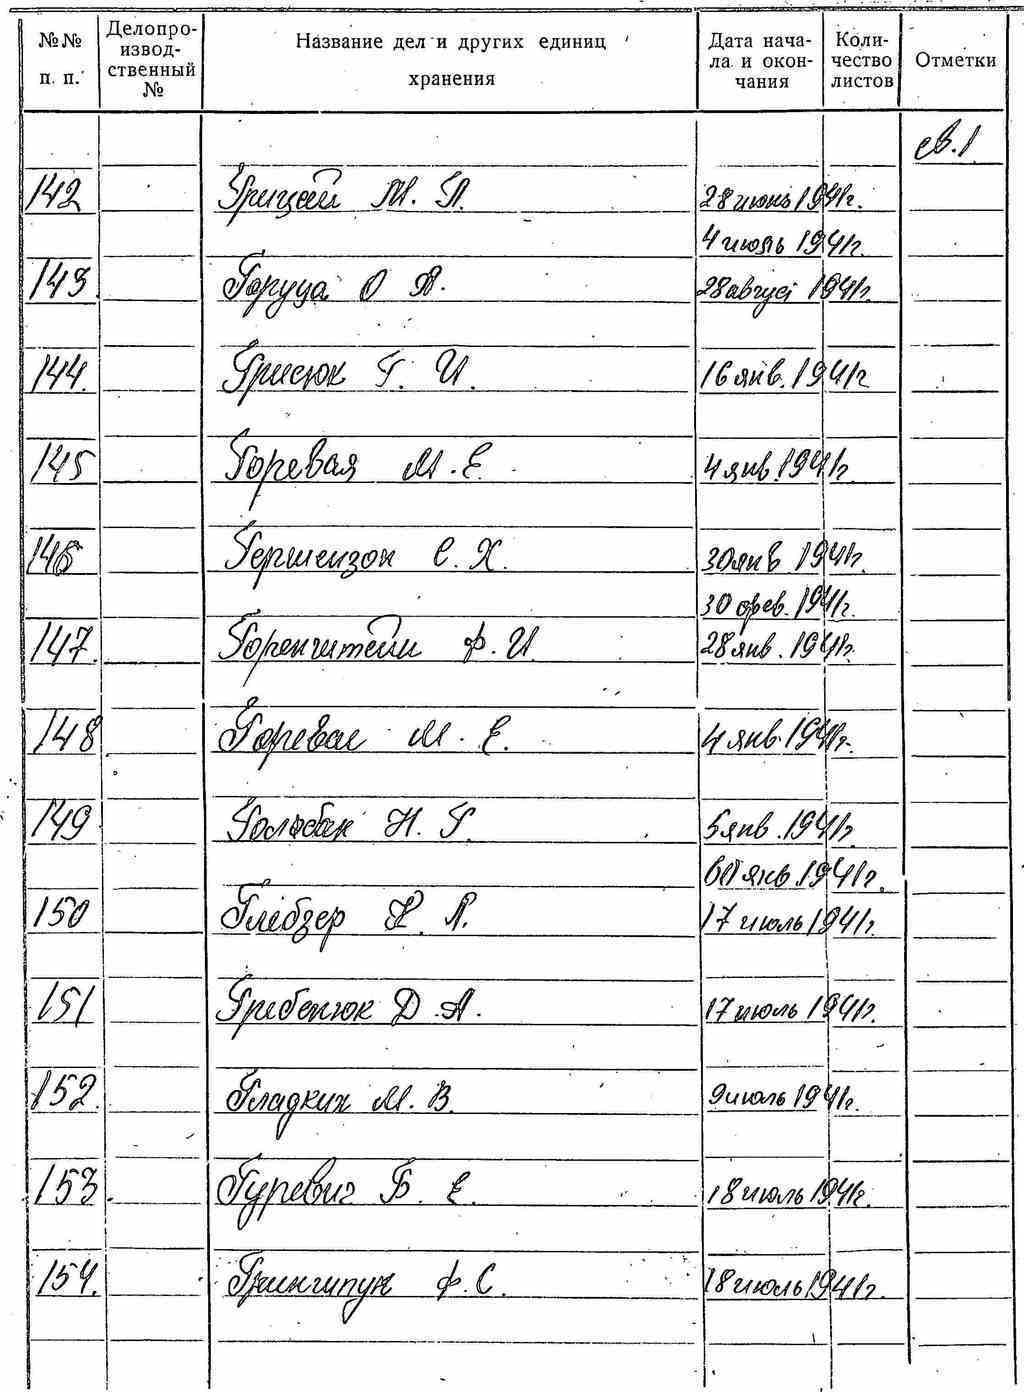 №№ п. п. Делопроизводственный № Название дел и других единиц хранения Дата начала и окончания Количество листов Отметки
св. 1
142 Грицай М. П. 28 июнь 1941г.
4 июль 1941г.
143. Горуца О А. 28 август 1941г.
144. Грисюк Г. И. 16 янв. 1941г
145 Горевая М. Е. 4 янв. 1941г.
146 Гершензон С. Х. 30 янв. 1941г.
30 фев. 1941г.
147. Горенштейн Ф. И. 28 янв. 1941г.
148 Горевая М. Е. 4 янв. 1941г.
149 Н. Г. 5 янв. 1941г.
янв. 1941г.
150 Глебзер Н. Л. 17 июль 1941г.
151 Гребенюк Д. А. 17 июль 1941г.
152. Гладких М. В. 9 июль 1941г.
153. Гуревич Б. Е. 18 июль 1941г.
154. Ф. С. 18 июль 1941г.